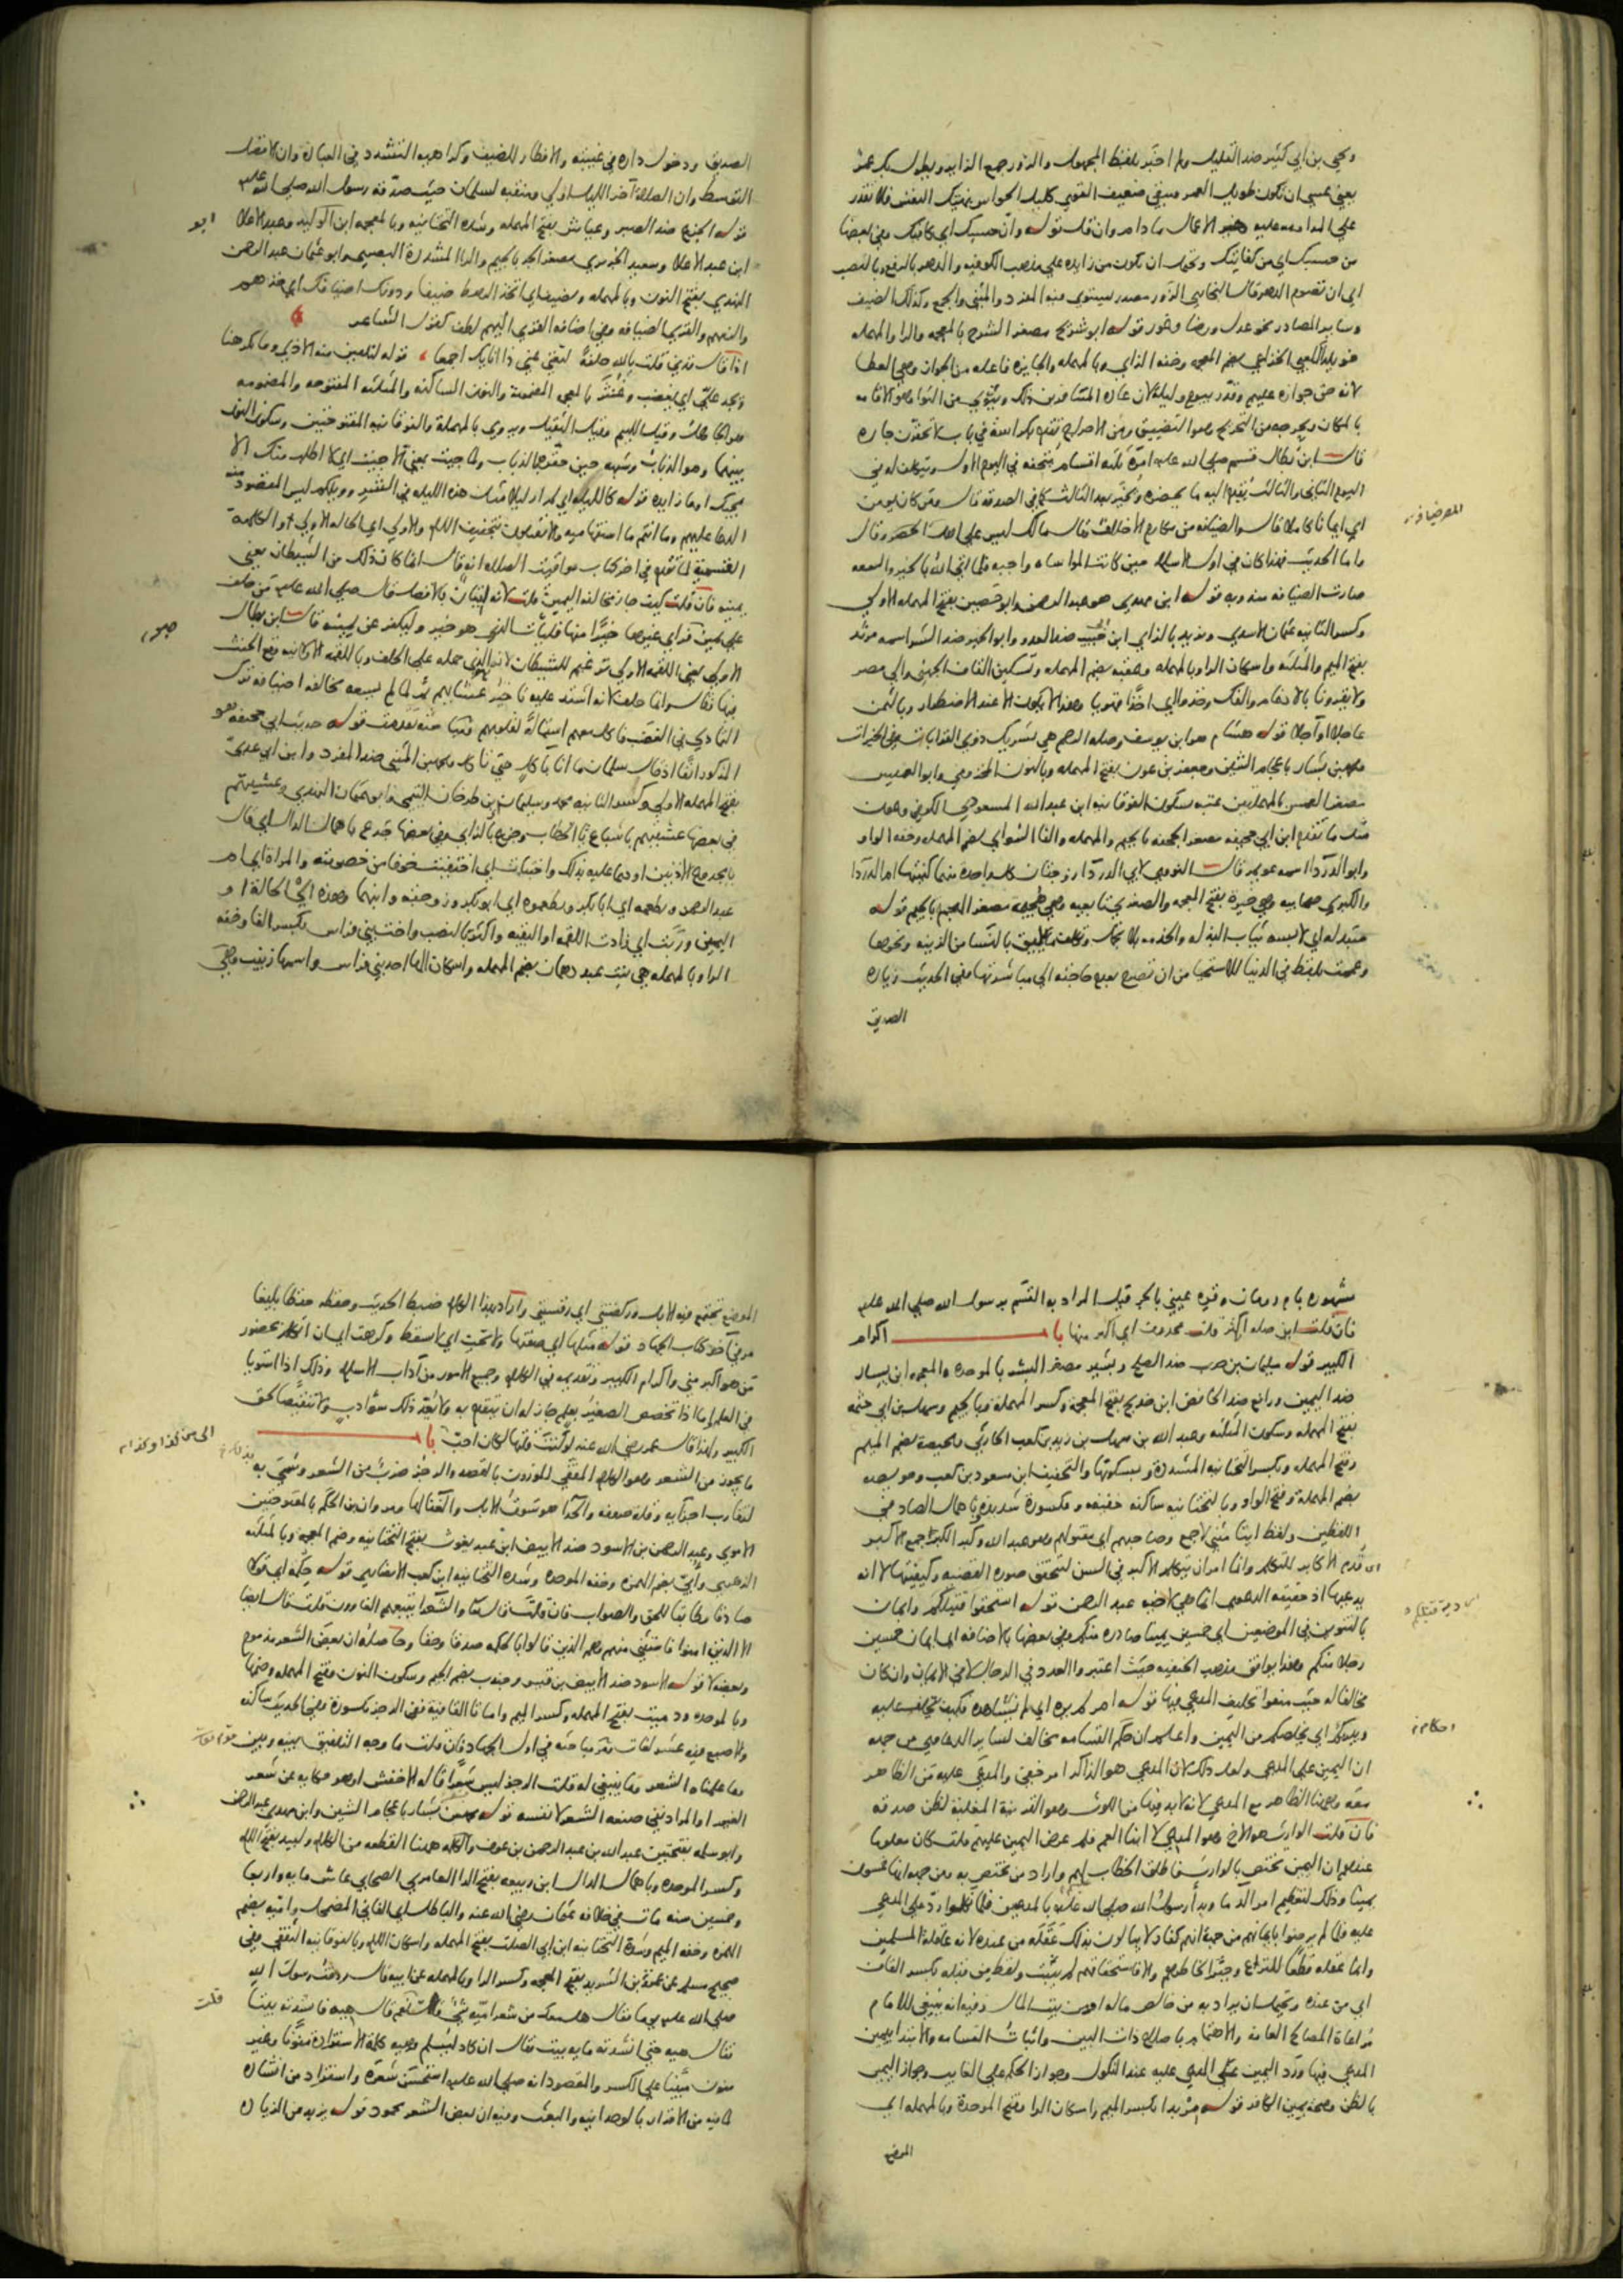 ويحيى بن ابي كثير ضد القليل ولم اخبر بلفظ المجهول والزور جمع الزاير ويطول بك عمر
يعني عسى ان تكون طويل العمر وتبقى ضعيف القوى كليل الحواس نهيك النفس فلا تقدر
علي المداومة عليه وخير الاعمال ما دام وان قل قوله وان حسبك اي كافيك وفي بعضها
من حسبك اي من كفايتك ويحتمل ان تكون من زايدة علي مذهب الكوفيه والدهر بالرفع وبالنصب
اي ان تصوم الدهر قال البخاري الزور مصدر يستوي فيه المفرد والمثنى والجمع وكذلك الضيف
وساير المصادر نحو عدل ورضا وغور قوله ابو شريح مصغر الشرح بالمعجمه والرا والمهمله
خويلد الكعبي الخزاعي بضم المعجمه وخفه الزاي وبالمهمله والجايزه فاعله من الجواز وهي العطا
لانه حق جوازه عليهم وقدر بيوم وليلة لان عادة المسافر بن ذلك ويثوي من الثوا وهو الاقامه
بالمكان ويحرجه من التحريج وهو التضييق ومن الاحراج تقدم في باب لا تحقرن جاره
قال ابن بطال قسم صلى الله عليه امره ثلثه اقسام يتحفه في اليوم الاول ويتكلف له في
اليوم الثاني والثالث يقدم اليه ما يحضره ويخير بعد الثالث كما في الصدقه قال ومن كان يومن
اي ايمانا كاملا قال والضيافه من مكارم الاخلاق وقال مالك ليس علي اهل الحضر وقال
واما الحديث فهذا كان في اول الاسلام حين كانت المواساه واجبه فلما اتى الله بالخير والسعه
صارت الضيافه مندوبه قوله ابن مهدي هو عبد الرحمن وابو حصين بفتح المهمله الاولى
وكسر الثانيه عثمان الاسدي ويزيد بالزاي ابن حبيب ضد العدو وابو الخير ضد الشر اسمه مرثد
بفتح الميم والمثلثه واسكان الرا وبالمهمله وعقبه بضم المهمله وتسكين القاف الجهني والي مصر
ولا يقروننا بالادغام والفك وخذوا اي اخذا قهريا وهذا لا يكون الا عند الاضطرار وبالثمن
عاجلا او آجلا قوله هشام هو ابن يوسف وصله الرحم هي تشريك ذوي القرابات في الخيرات
ومحمد بن بشار باعجام الشين وجعفر بن عون بفتح المهمله وبالنون المخزومي وابو العميس
مصغر العمس بالمهملتين عتبه بسكون الفوقانيه ابن عبد الله المسعودي الكوفي وعون
مثل ما تقدم ابن ابي جحيفه مصغر الجحفه بالجيم والمهمله والفا السوائي بضم المهمله وخفه الواو
وابو الدردا اسمه عويمر قال النووي لابي الدردا زوجتان كل واحدة منهما كنيتها ام الدردا
والكبرى صحابيه وهي خيرة بفتح المعجمه والصغرى تابعيه وهي هجيمه مصغر الهجم بالجيم قوله
متبذله اي لابسه ثياب البذله والخدمه بلا تجمل وتكلف ما يليق بالنسا من الزينه ونحوها
وعممت بلفظ في الدنيا للاستحيا من ان تصرح بعدم حاجته الى مباشرتها وفي الحديث زياره
الصديق
الصديق ودخول داره في غيبته والافطار للضيف وكراهيه التشدد في العباده وان الافضل
التوسط وان الصلاة آخر الليل اولى ومنقبه لسلمان حيث صدقه رسول الله صلى الله عليه
قوله الجزع ضد الصبر وعياش بفتح المهمله وشده التحتانيه وبالمعجمه ابن الوليد وعبد الاعلا
ابو
ابن عبد الاعلا وسعيد الجريري مصغر الجر بالجيم والرا المشددة البصري وابو عثمان عبد الرحمن
النهدي بفتح النون وبالمهمله وتضيف اي اتخذ الرهط ضيفا ودونك اضيافك اي خذهم
والزمهم والقرى الضيافه وفي اضافه القرى اليهم لطف كقول الشاعر
اذا قال قدني قلت بالله حلفة لتغني عني ذا انايك اجمعا قوله لنلقين منه الاذى وما يكرهنا
ويجد علي اي يغضب وغنثر بالمعجمه المضمومة والنون الساكنه والمثلثه المفتوحه والمضمومه
هو الجاهل وقيل اللئيم وقيل الثقيل ويروي بالمهملة والفوقانيه المفتوحتين وسكون النون
بينهما وهو الذباب وشبهه حين حقره بالذباب ولما جيت بمعنى الا جيت اي لا اطلب منك الا
مجيك او ما زايده قوله كالليله اي لم ار ليلا مثل هذه الليله في الشر وويلكم ليس المقصود منه
الدعا عليهم وما انتم ما استفهاميه والا تقبلون بتخفيف اللام والاولى اي الحاله الاولى او الكلمة
القسمية لما تقدم في اخر كتاب مواقيت الصلاه انه قال انما كان ذلك من الشيطان يعني
يمينه فان قلت كيف جاز مخالفه اليمين قلت لانه اتيان بالافضل قال صلى الله عليه من حلف
علي يمين فراى غيرها خيرا منها فليات الذي هو خير وليكفر عن يمينه قال ابن بطال
الاولى يعني اللقمه الاولى ترغيم للشيطان لانه الذي حمله على الحلف وباللقمه الاولى وقع الحنث
فيها وقال وانما حلف لانه اشتد عليه تاخير عشايهم ثم لما لم يسعه مخالفه اضيافه ترك
التمادي في الغضب فاكل معهم استمالة لقلوبهم قوله حديث ابي جحيفه هو
المذكور انفا اذ قال سلمان ما انا بآكل حتى تاكل ومحمد بن المثنى ضد المفرد وابن ابي عدي
بفتح المهمله الاولى وكسر الثانيه محمد وسليمان بن طرخان التيمي وابو عثمان النهدي وعشيتهم
في بعضها عشيتيهم باشباع تا الخطاب وجزع بالزاي وفي بعضها جدع باهمال الدال اي قال
يا مجدوع الاذنين او دعا عليه بذلك واختبات اي اختفيت خوفا من خصومته والمراة اي ام
عبد الرحمن ويطعمه اي ابا بكر ويطعموه اي ابو بكر وزوجته وابنهما وهذه اي الحالة او
اليمين وربت اي زادت اللقمه او البقيه واكثر بالنصب واخت بني فراس بكسر الفا وخفه
الرا وبالمهمله هي بنت عبد دهمان بضم المهمله واسكان الها احد بني فراس واسمها زينب وهي
مشهوره بام رومان وقره عيني بالجر قيل المراد به القسم برسول الله صلى الله عليه
فان قلت اين صله اكثر قلت محذوف اي اكثر منها باب اكرام
الكبير قوله سليمان بن حرب ضد الصلح وبشير مصغر البشر بالموحده والمعجمه ابن يسار
ضد اليمين ورافع ضد الخافض ابن خديج بفتح المعجمه وكسر المهملة وبالجيم وسهل بن ابي حثمه
بفتح المهمله وسكون المثلثه وعبد الله بن سهل بن زيد بن كعب الحارثي ومحيصة بضم الميم
وفتح المهمله وكسر التحتانيه المشددة وبسكونها والتخفيف ابن مسعود بن كعب وحويصه
بضم المهملة وفتح الواو وبالتحتانيه ساكنه خفيفه ومكسورة شديدة وباهمال الصاد في
اللفظين ولفظ ابنا مثنى لا جمع وصاحبهم اي مقتولهم وهو عبد الله وكبر الكبر جمع الاكبر
اي قدم الاكابر للتكلم وانما امر ان يتكلم الاكبر في السن لتحقق صوره القضيه وكيفيتها لا انه
يدعيها اذ حقيقه الدعوى انما هي لاخيه عبد الرحمن قوله استحقوا قتيلكم وايمان
بالتنوين في الموضعين اي خمسين يمينا صادره منكم وفي بعضها بالاضافه اي ايمان خمسين
رجلا منكم وهذا يوافق مذهب الحنفيه حيث اعتبروا العدد في الرجال لا في الايمان وان كان
مخالفا له حيث منعوا تحليف المدعي فيها قوله امر لم يره اي لم نشاهده فكيف نحلف عليه
ويبريكم اي يخلصكم من اليمين واعلم ان حكم القسامه مخالف لساير الدعاوي من جهه
احكام
ان اليمين على المدعي ولعل ذلك لان المدعي هو الذاكر امر خفي والمدعي عليه من الظاهر
معه وههنا الظاهر مع المدعي لانه لا بد فيها من اللوث وهو القرينة المغلبة لظن صدقه
فان قلت الوارث هو الاخ وهو المدعي لا ابنا العم فلم عرض اليمين عليهم قلت كان معلوما
عندهم ان اليمين تختص بالوارث فاطلق الخطاب لهم واراد من يختص به ومن جهه انها خمسون
يمينا وذلك لتعظيم امر الدما وبدا رسول الله صلى الله عليه بالمدعين فلما نكلوا رد على المدعى
عليه فلما لم يرضوا بايمانهم من جهة انهم كفار لا يبالون بذلك عقله من عنده لانه عاقلة المسلمين
وانما عقله قطعا للنزاع وجبرا لخاطرهم والا فاستحقاقهم لم يثبت ولفظ من قبله بكسر القاف
اي من عنده ويحتمل ان يراد به من خالص ماله او من بيت المال وفيه انه ينبغي للامام
مراعاة المصالح العامه والاهتمام باصلاح ذات البين واثبات القسامه والابتدا بيمين
المدعي فيها ورد اليمين على المدعى عليه عند النكول وجواز الحكم على الغايب وجواز اليمين
بالظن وصحه يمين الكافر قوله مربدا بكسر الميم واسكان الرا وفتح الموحدة وبالمهمله اي
الموضع
الموضع تجتمع فيه الابل وركضتني اي رفستني واراد بهذا الكلام ضبط الحديث وحفظه حفظا بليغا
مر في آخر كتاب الجهاد قوله مثلها اي صفتها ولا تحت اي لا تسقط وكرهت اي ان اتكلم بحضور
من هو اكبر مني واكرام الكبير وتقديمه في الكلام وجميع الامور من آداب الاسلام وذلك اذا استويا
في العلم اما اذا تخصص الصغير بعلم جاز له ان يتقدم به ولا يعد ذلك سوء ادب ولا تنقيصا لحق
الكبير ولهذا قال عمر رضي الله عنه لو كنت قلتها لكان احب باب
الى من كذا وكذا
ما يجوز من الشعر وهو الكلام المقفى الموزون بالقصد والرجز ضرب من الشعر وسمي به
لتقارب اجزايه وقله حروفه والحدا هو سوق الابل والغنا لها ومروان بن الحكم بالمفتوحتين
الاموي وعبد الرحمن بن الاسود ضد الابيض ابن عبد يغوث بفتح التحتانيه وضم المعجمه وبالمثلثه
الزهري وابي بضم الهمزه وخفه الموحده وشده التحتانيه ابن كعب الانصاري قوله حكمة اي قولا
صادقا مطابقا للحق والصواب فان قلت قال تعالى والشعرا يتبعهم الغاوون قلت قال ايضا
الا الذين امنوا فاستثنى منهم وهم الذين قالوا بالحكمه صدقا وحقا وحاصله ان بعض الشعر مذموم
وبعضه لا قوله الاسود ضد الابيض بن قيس وجندب بضم الجيم وسكون النون وفتح المهمله وضمها
وبالموحده ودميت بفتح المهمله وكسر الميم واما تا القافيه ففي الرجز مكسورة وفي الحديث ساكنه
والاصبع فيه عشر لغات مر مباحثه في اول الجهاد فان قلت ما وجه التلفيق بينه وبين قوله تعالى
وما علمناه الشعر وما ينبغي له قلت الرجز ليس شعرا قاله الاخفش او هو حكايه عن شعر
الغير او المراد نفي صنعه الشعر لا نفسه قوله محمد بن بشار باعجام الشين وابن مهدي عبد الرحمن
وابو سلمه بفتحتين عبد الله بن عبد الرحمن بن عوف والكلمه ههنا القطعه من الكلام ولبيد بفتح اللام
وكسر الموحده وباهمال الدال ابن ربيعه بفتح الرا العامري الصحابي عاش مايه واربعا
وخمسين سنه مات في خلافه عثمان رضي الله عنه والباطل اي الفاني المضمحل واميه بضم
الهمزه وخفه الميم وشدة التحتانيه ابن ابي الصلت بفتح المهمله واسكان اللام وبالفوقانيه الثقفي وفي
صحيح مسلم عن عمرو بن الشريد بفتح المعجمه وكسر الرا وبالمهمله عن ابيه قال ردفت رسول الله
صلى الله عليه يوما فقال هل معك من شعر اميه شي قلت نعم قال هيه فانشدته بيتا
قلت
فقال هيه حتى انشدته مايه بيت فقال ان كاد ليسلم وهيه كلمة الاستزادة منونا وغير
منون مبنيا على الكسر والمقصود انه صلى الله عليه استحسن شعره واستزاد من انشاده
لما فيه من الاقرار بالوحدانيه والبعث وفيه ان بعض الشعر محمود قوله يزيد من الزيادة